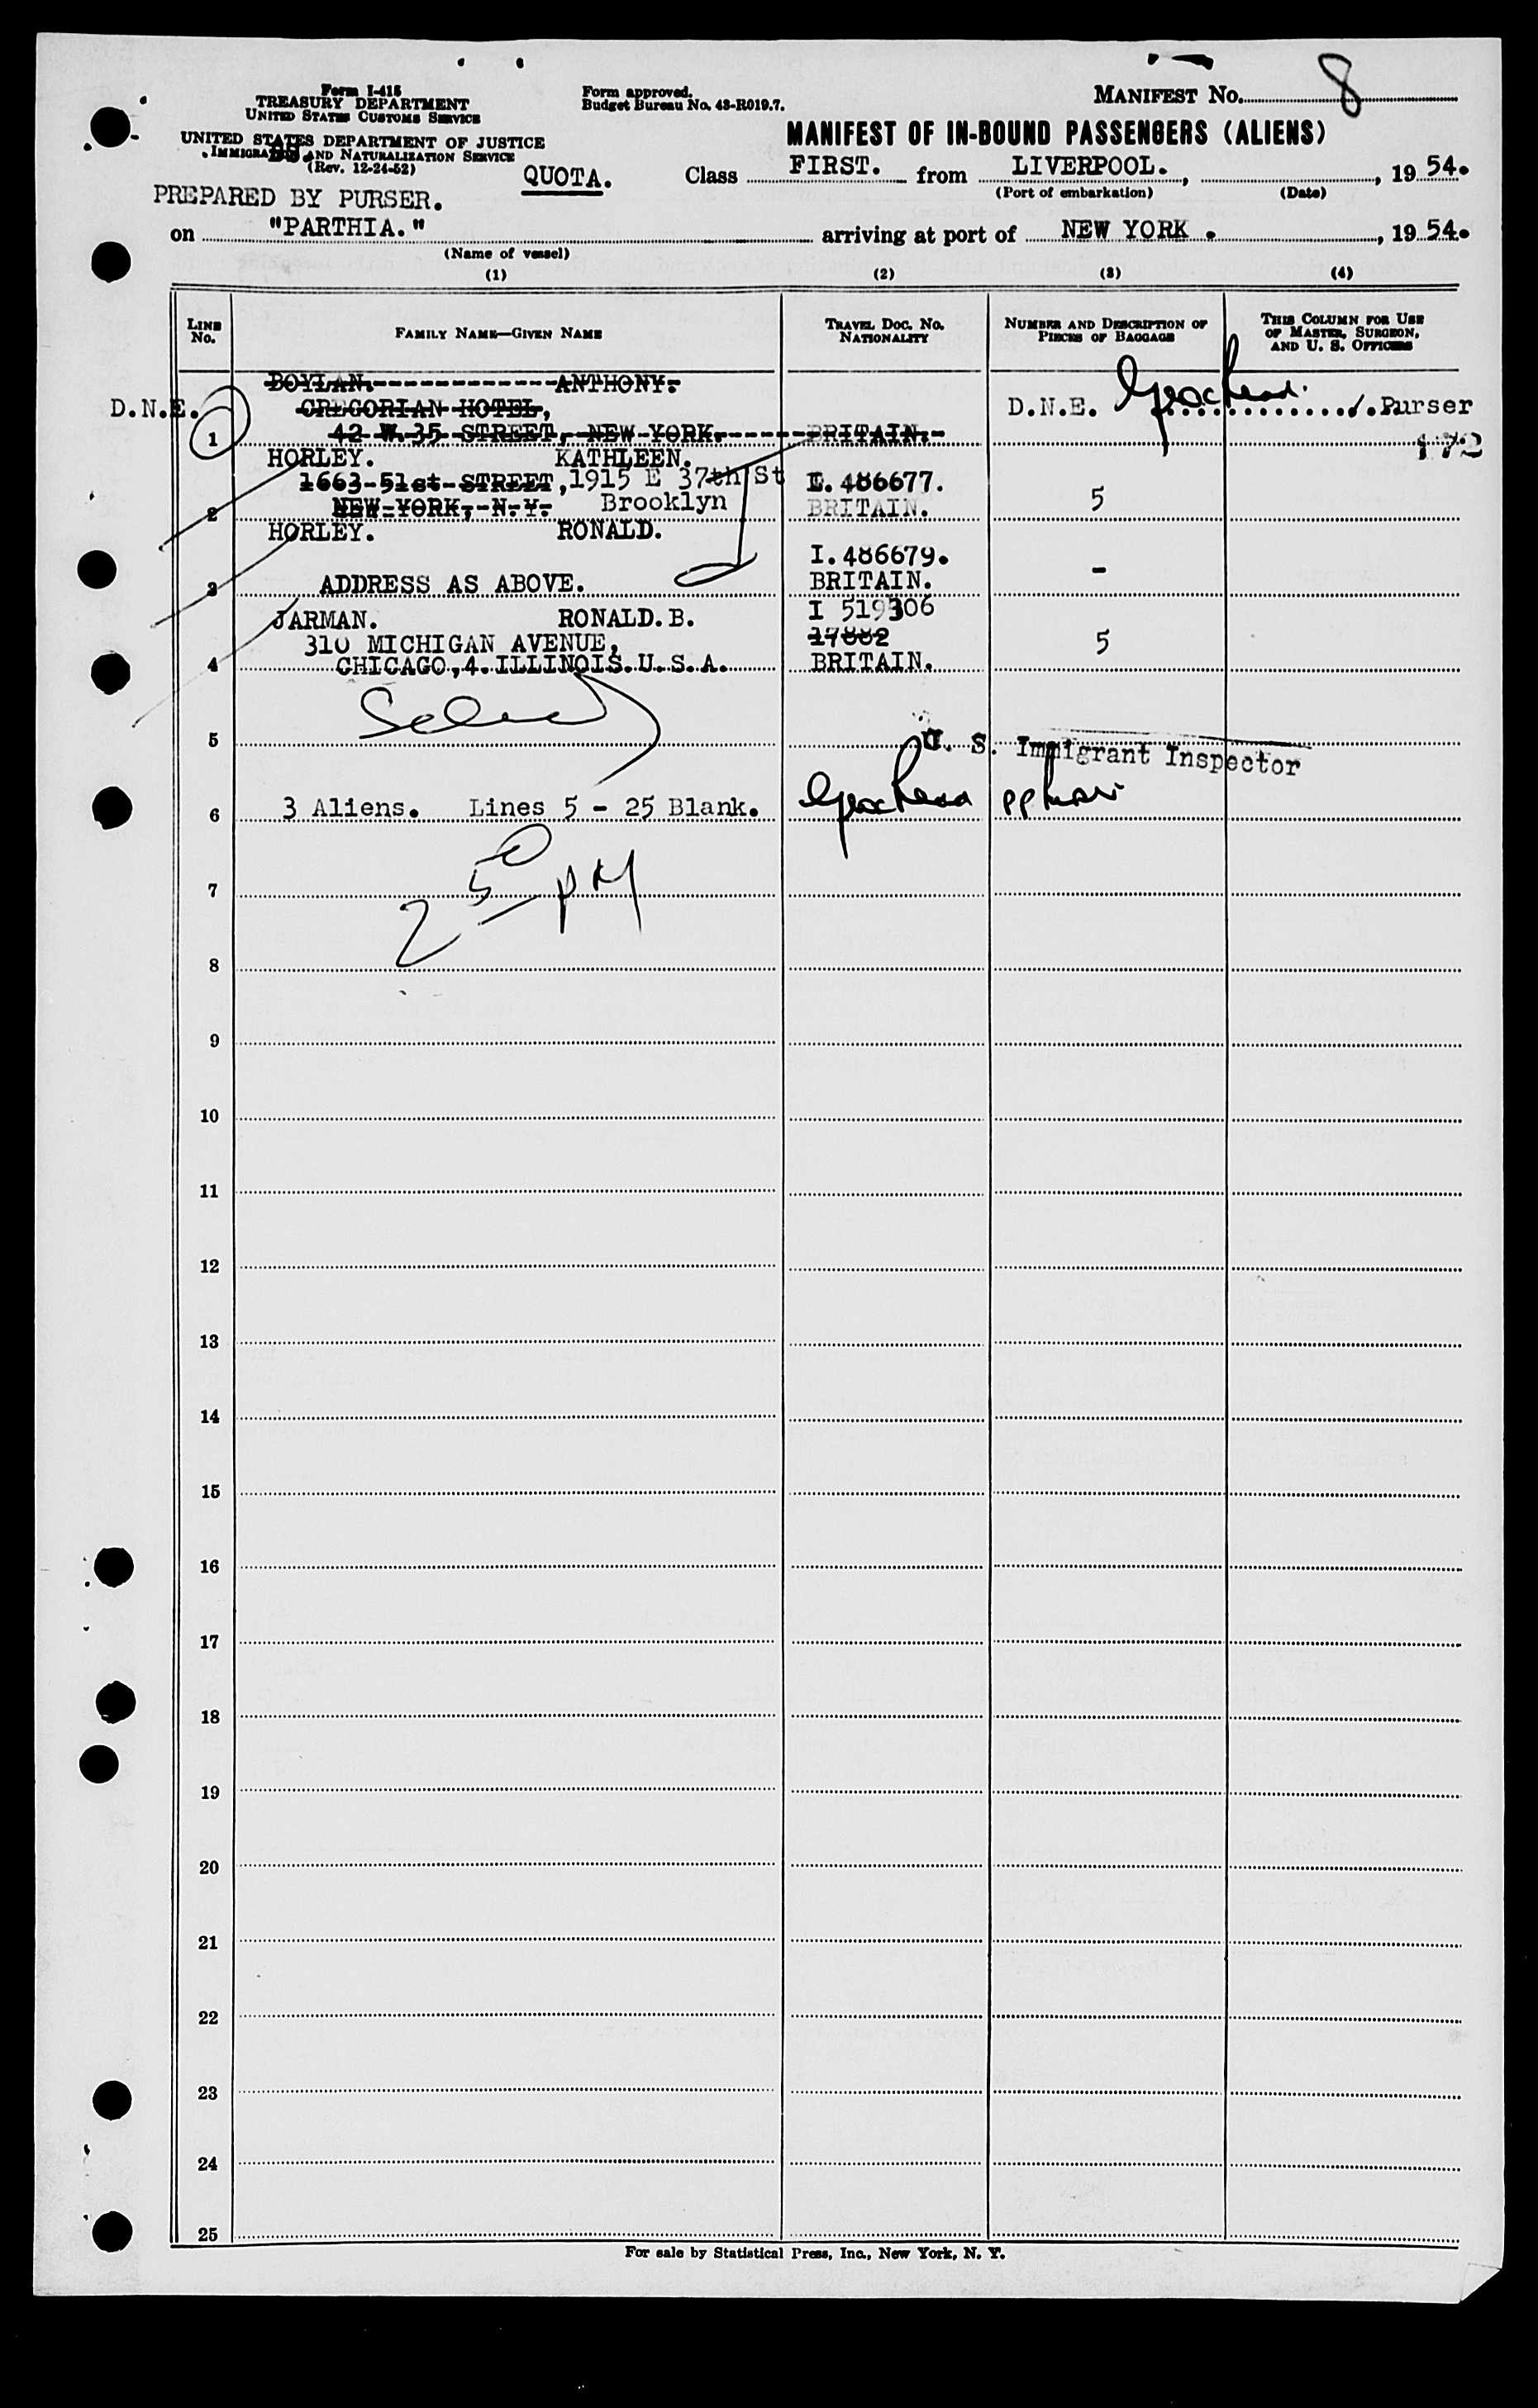 Form I-415
TREASURY DEPARTMENT
UNITED STATES CUSTOMS SERVICE
UNITED STATES DEPARTMENT OF JUSTICE
IMMIGRATION AND NATURALIZATION SERVICE
(Rev. 12-24-52)
Form approved.
Budget Bureau No. 43-R019.7.
MANIFEST No. 8
MANIFEST OF IN-BOUND PASSENGERS (ALIENS)
QUOTA. Class FIRST. from LIVERPOOL., , 19 54.
(Port of embarkation) (Date)
PREPARED BY PURSER.
on "PARTHIA." arriving at port of NEW YORK. , 19 54.
(Name of vessel)
(1) (2) (3) (4)
LINE No. FAMILY NAME—GIVEN NAME TRAVEL DOC. No. NATIONALITY NUMBER AND DESCRIPTION OF PIECES OF BAGGAGE THIS COLUMN FOR USE OF MASTER, SURGEON, AND U. S. OFFICERS
BOYLAN. ANTHONY.
D.N.E. GREGORIAN HOTEL, D.N.E. Purser
1 42 W. 35 STREET, NEW YORK. BRITAIN. 172
HORLEY. KATHLEEN.
1663-51st-STREET, 1915 E 37th St I. 486677.
2 NEW YORK, N.Y. Brooklyn BRITAIN. 5
HORLEY. RONALD.
I. 486679.
3 ADDRESS AS ABOVE. BRITAIN. -
JARMAN. RONALD. B. I 519306
310 MICHIGAN AVENUE, 17882 5
4 CHICAGO, 4. ILLINOIS. U.S.A. BRITAIN.
5 U. S. Immigrant Inspector
6 3 Aliens. Lines 5 - 25 Blank.
7
2 50 PM
8
9
10
11
12
13
14
15
16
17
18
19
20
21
22
23
24
25
For sale by Statistical Press, Inc., New York, N. Y.